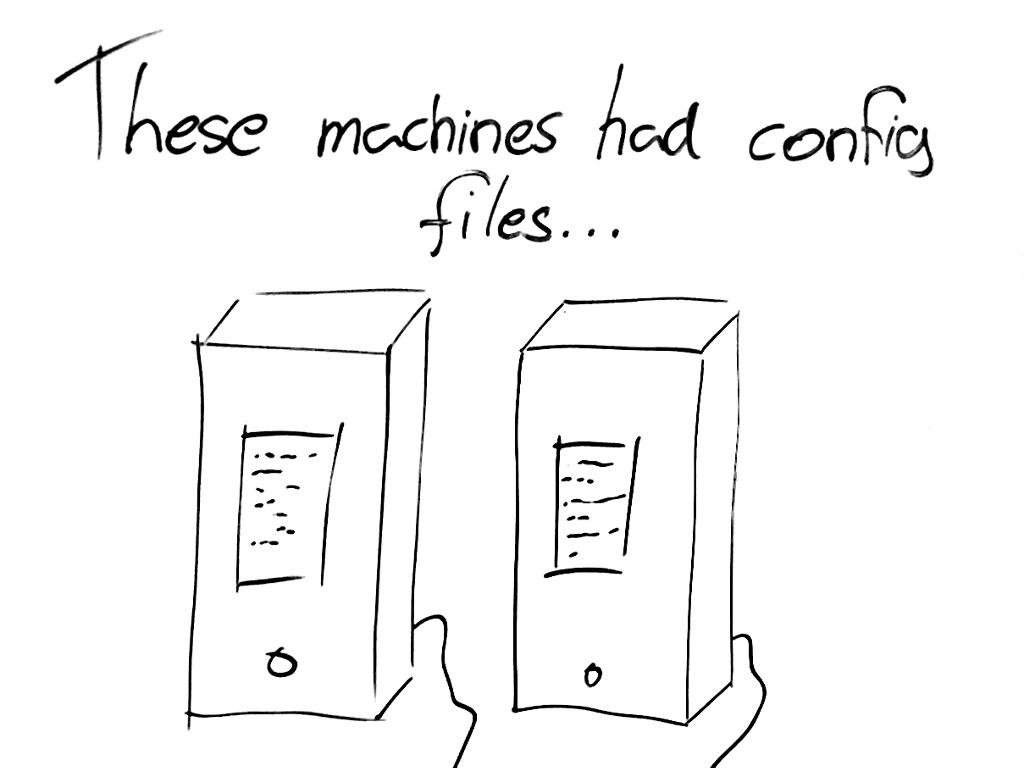 These machines had config
files...